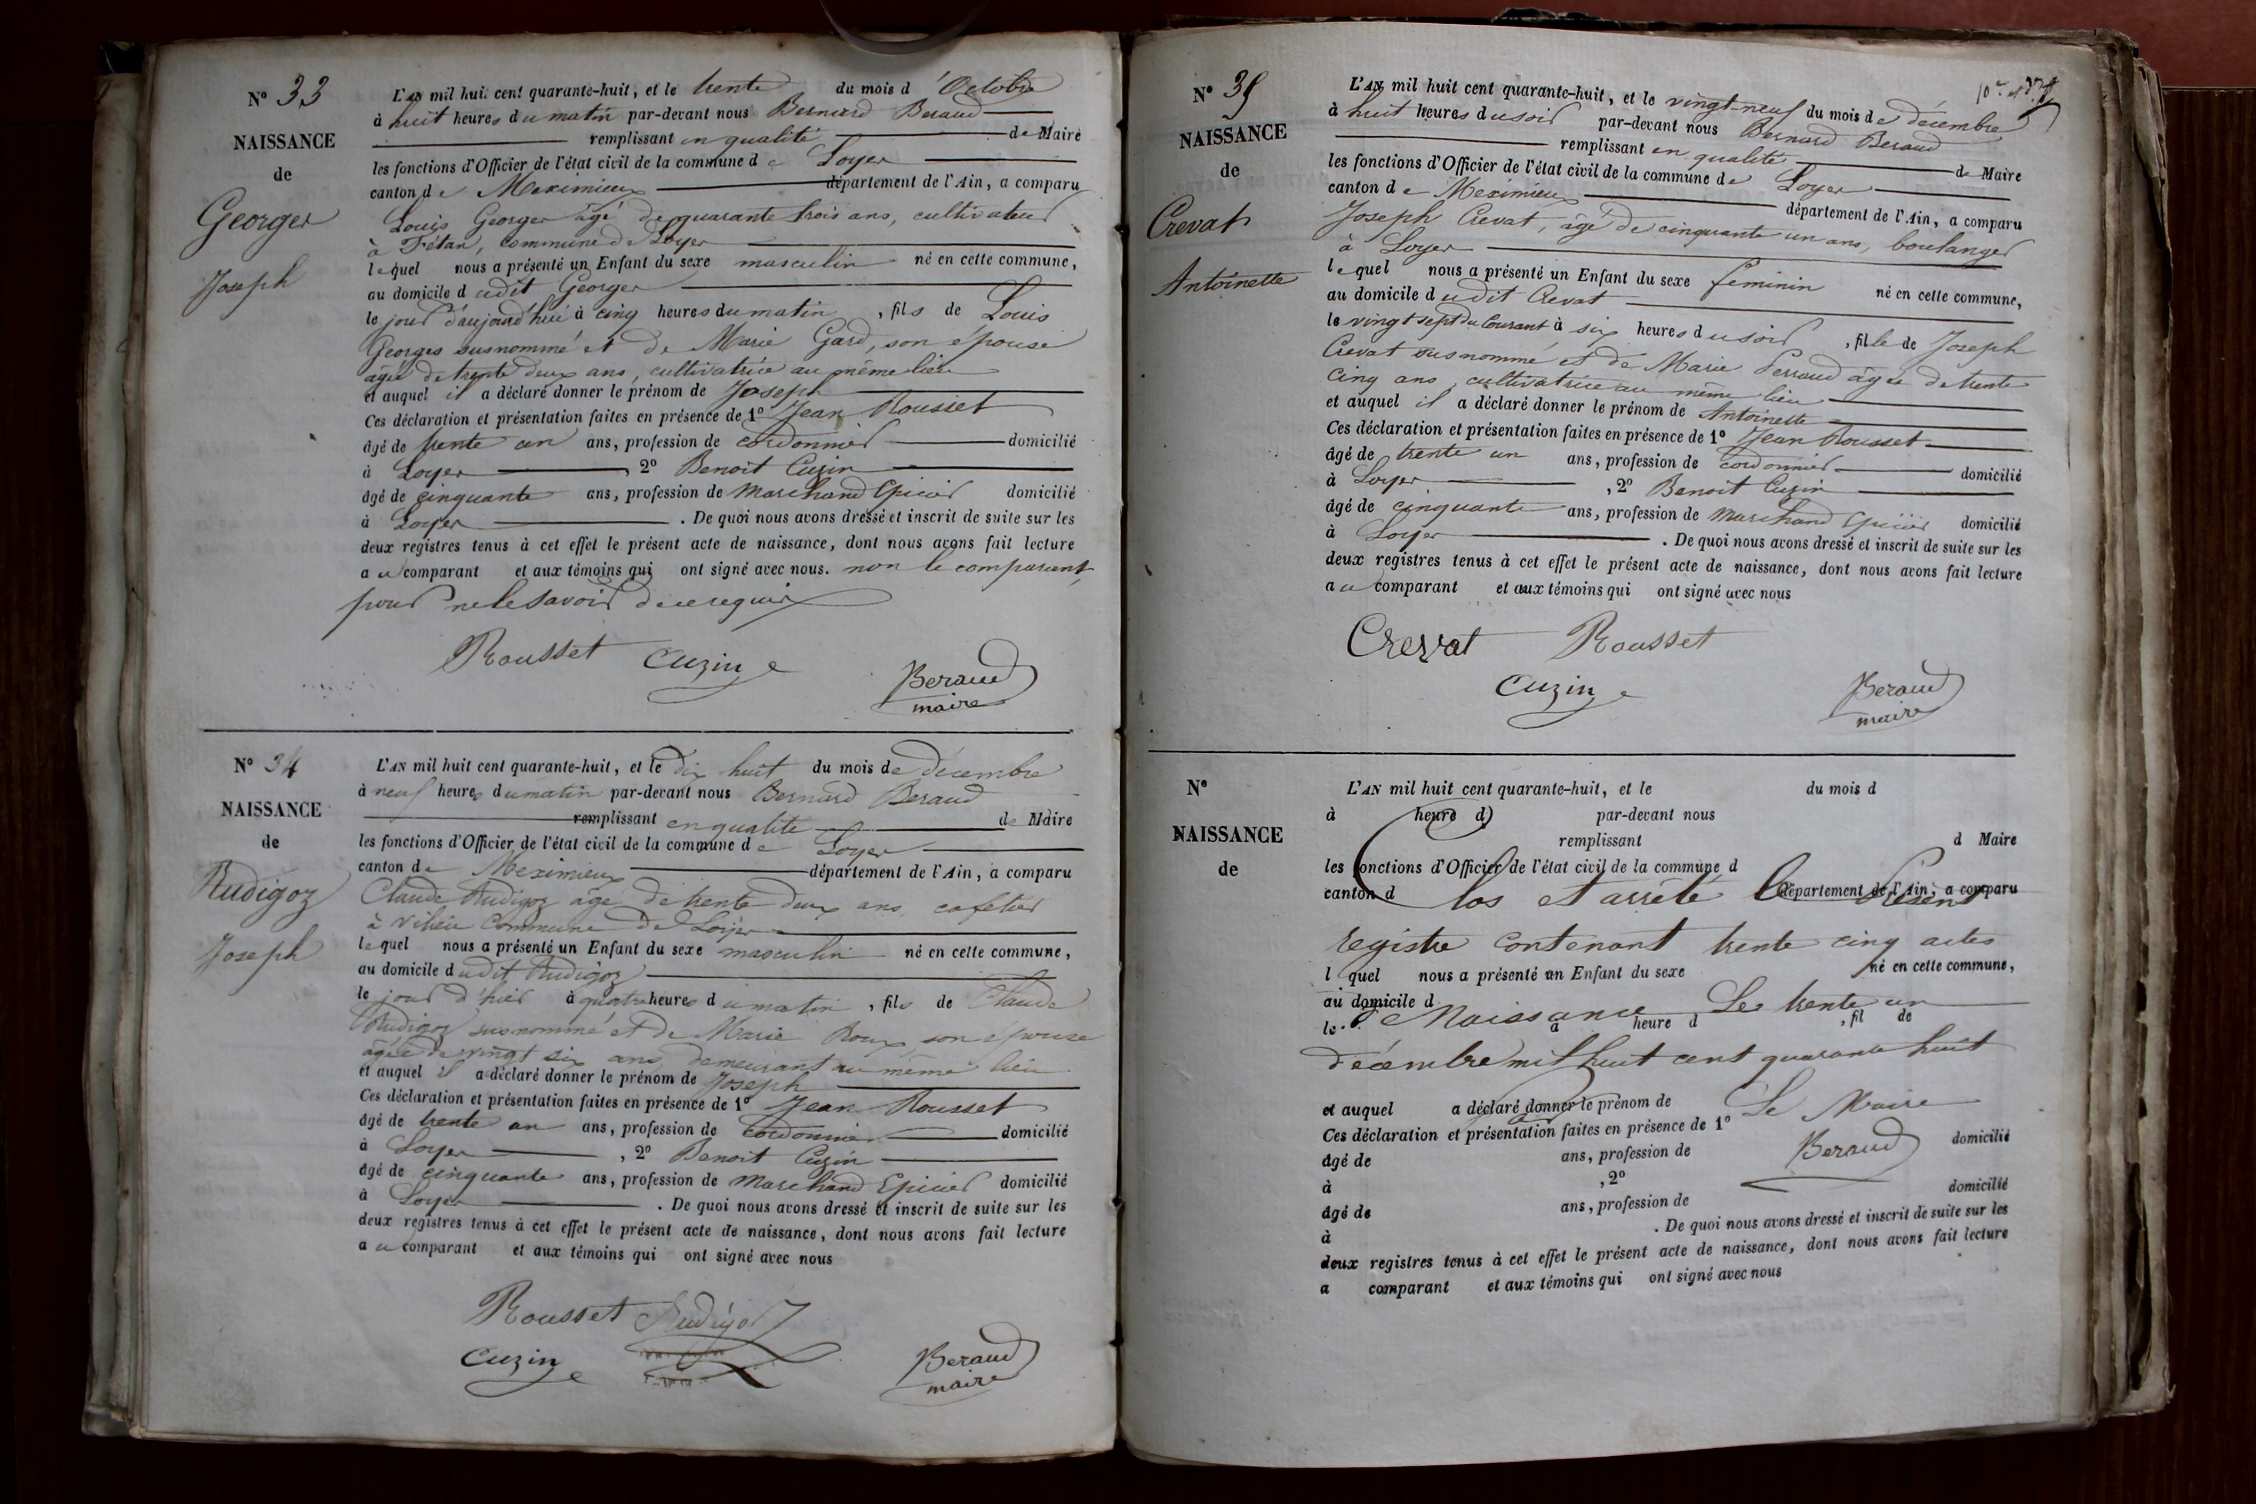 N° 33
NAISSANCE
de
Georger
Joseph
L'AN mil huit cent quarante-huit, et le trente du mois d'Octobre
à huit heures du matin par-devant nous Bernard Beraud
remplissant en qualité de Maire
les fonctions d'Officier de l'état civil de la commune de Loyer
canton de Meximieux département de l'Ain, a comparu
Louis Georger âgé de quarante trois ans, cultivateur
à commune de Loyer
lequel nous a présenté un Enfant du sexe masculin né en cette commune,
au domicile dudit Georger
le jour d'aujourd'hui à cinq heures du matin, fils de Louis
Georges susnommé et de Marie Gard, son épouse
âgée de trente deux ans, cultivatrice au même lieu
et auquel il a déclaré donner le prénom de Joseph
Ces déclaration et présentation faites en présence de 1° Jean Rousset
âgé de trente un ans, profession de cordonnier domicilié
à Loyer, 2° Benoit Cuzin
âgé de cinquante ans, profession de Marchand Epicier domicilié
à Loyer. De quoi nous avons dressé et inscrit de suite sur les
deux registres tenus à cet effet le présent acte de naissance, dont nous avons fait lecture
au comparant et aux témoins qui ont signé avec nous. non le comparant
pour ne le savoir de ce requis
Rousset Cuzin
Beraud
maire
N° 34
NAISSANCE
de
Rudigoz
Joseph
L'AN mil huit cent quarante-huit, et le dix huit du mois de décembre
à neuf heures du matin par-devant nous Bernard Beraud
remplissant en qualité de Maire
les fonctions d'Officier de l'état civil de la commune de Loyer
canton de Meximieux département de l'Ain, a comparu
Claude Rudigoz âgé de trente deux ans, cafetier
à Vilieu Commune de Loyer
lequel nous a présenté un Enfant du sexe masculin né en cette commune,
au domicile dudit Rudigoz
le jour d'hier à quatre heures du matin, fils de Claude
Rudigoz susnommé et de Marie Roux son épouse
âgée de vingt six ans demeurant au même lieu
et auquel il a déclaré donner le prénom de Joseph
Ces déclaration et présentation faites en présence de 1° Jean Rousset
âgé de trente un ans, profession de cordonnier domicilié
à Loyer, 2° Benoit Cuzin
âgé de cinquante ans, profession de Marchand Epicier domicilié
à Loyer. De quoi nous avons dressé et inscrit de suite sur les
deux registres tenus à cet effet le présent acte de naissance, dont nous avons fait lecture
au comparant et aux témoins qui ont signé avec nous
Rousset Rudigoz
Cuzin
Beraud
maire
N° 35
NAISSANCE
de
Crevat
Antoinette
L'AN mil huit cent quarante-huit, et le vingt-neuf du mois de décembre
à huit heures du soir par-devant nous Bernard Beraud
remplissant en qualité de Maire
les fonctions d'Officier de l'état civil de la commune de Loyer
canton de Meximieux département de l'Ain, a comparu
Joseph Crevat, âgé de cinquante un ans, boulanger
à Loyer
lequel nous a présenté un Enfant du sexe féminin né en cette commune,
au domicile dudit Crevat
le vingt sept du Courant à six heures du soir, fille de Joseph
Crevat susnommé et de Marie Perraud âgée de trente
cinq ans, cultivatrice au même lieu
et auquel il a déclaré donner le prénom de Antoinette
Ces déclaration et présentation faites en présence de 1° Jean Rousset
âgé de trente un ans, profession de cordonnier domicilié
à Loyer, 2° Benoit Cuzin
âgé de cinquante ans, profession de Marchand Epicier domicilié
à Loyer. De quoi nous avons dressé et inscrit de suite sur les
deux registres tenus à cet effet le présent acte de naissance, dont nous avons fait lecture
au comparant et aux témoins qui ont signé avec nous
Crevat Rousset
Cuzin
Beraud
maire
N°
NAISSANCE
de
L'AN mil huit cent quarante-huit, et le du mois d
à heure d par-devant nous
remplissant d Maire
les fonctions d'Officier de l'état civil de la commune d
canton d département de l'Ain, a comparu
Clos et arrêté le Présent
registre contenant trente cinq actes
l quel nous a présenté un Enfant du sexe né en cette commune,
au domicile d
de Naissance Le trente un
le à heure d, fil de
décembre mil huit cent quarante huit
et auquel a déclaré donner le prénom de
Le Maire
Ces déclaration et présentation faites en présence de 1°
Beraud
âgé de ans, profession de domicilié
à, 2°
âgé de ans, profession de domicilié
à. De quoi nous avons dressé et inscrit de suite sur les
deux registres tenus à cet effet le présent acte de naissance, dont nous avons fait lecture
a comparant et aux témoins qui ont signé avec nous